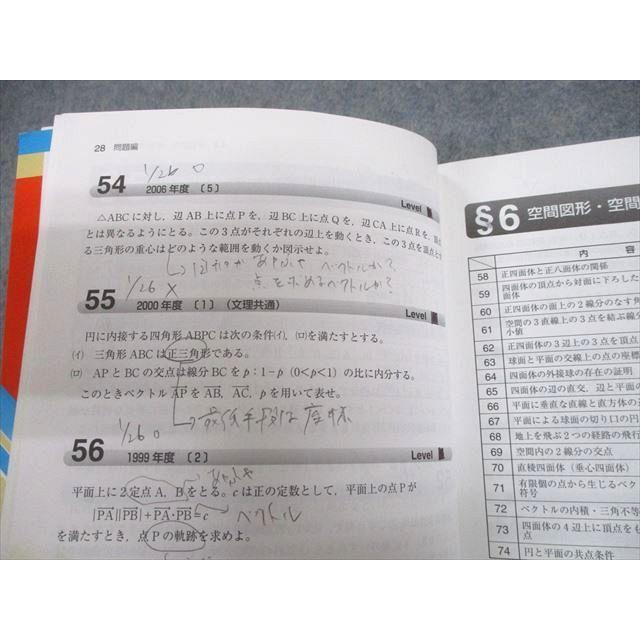 28 問題編
1/26 ○
54
2006年度〔5〕
Level
△ABCに対し，辺AB上に点Pを，辺BC上に点Qを，辺CA上に点Rを，頂点
とは異なるようにとる。この3点がそれぞれの辺上を動くとき，この3点を頂点と
る三角形の重心はどのような範囲を動くか図示せよ。
ベクトルか？
点を求めるベクトルか？
1/26 ×
55
2000年度〔1〕（文理共通）
Level
円に内接する四角形ABPCは次の条件(イ)，(ロ)を満たすとする。
(イ) 三角形ABCは正三角形である。
(ロ) APとBCの交点は線分BCをp：1−p（0<p<1）の比に内分する。
このときベクトルAPをAB，AC，pを用いて表せ。
1/26 ○
座標
56
1999年度〔2〕
Level
平面上に2定点A，Bをとる。cは正の定数として，平面上の点Pが
|PA||PB|+PA・PB=c
ベクトル
を満たすとき，点Pの軌跡を求めよ。
§6 空間図形・空間
内容
58 正四面体と正八面体の関係
59 四面体の頂点から対面に下ろした
面体
60 正四面体の面上の2線分のなす
61 空間の3直線上の3点を結ぶ線分
小値
62 正四面体の3辺上の3点を頂点
63 球面と平面の交線上の点の座標
64 四面体の外接球の存在の証明
65 四面体の辺の直交，辺と平面の
66 平面に垂直な直線と直方体の
67 平面による球面の切り口の円
68 地上を飛ぶ2つの経路の飛行
69 空間内の2線分の交点
70 直稜四面体（垂心四面体）
71 有限個の点から生じるベクト
符号
72 ベクトルの内積・三角不等
73 四面体の4辺上に頂点をも
点
74 円と平面の共点条件